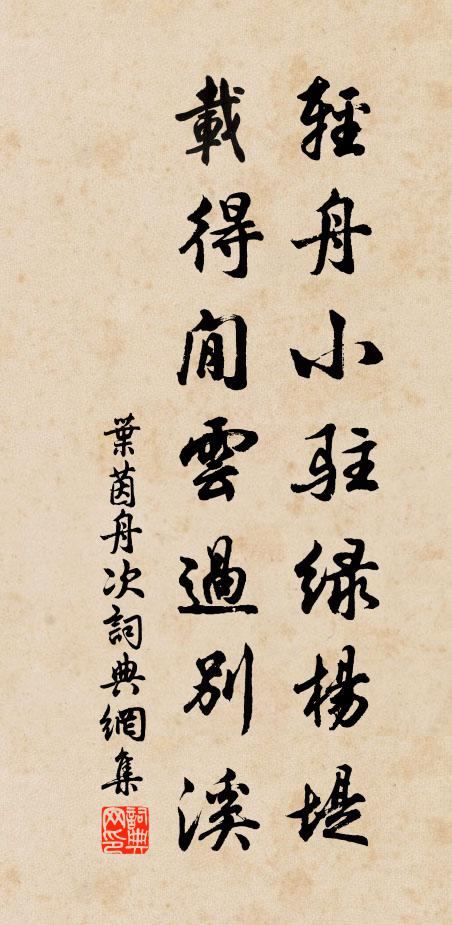 輕舟小駐綠楊堤
載得閒雲過別溪
葉茵舟次詞典網集
詞典網印